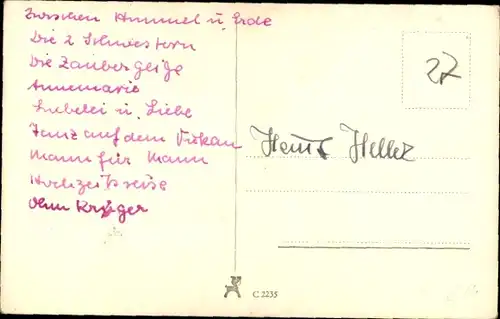 Zwischen Himmel u. Erde
Die 2 Schwestern
Die Zaubergeige
Annemarie
Liebelei u. Liebe
Tanz auf dem Vukan
Mann für Mann
Hochzeitsreise
Ohm Krüger
27
Hans Heller
C 2235